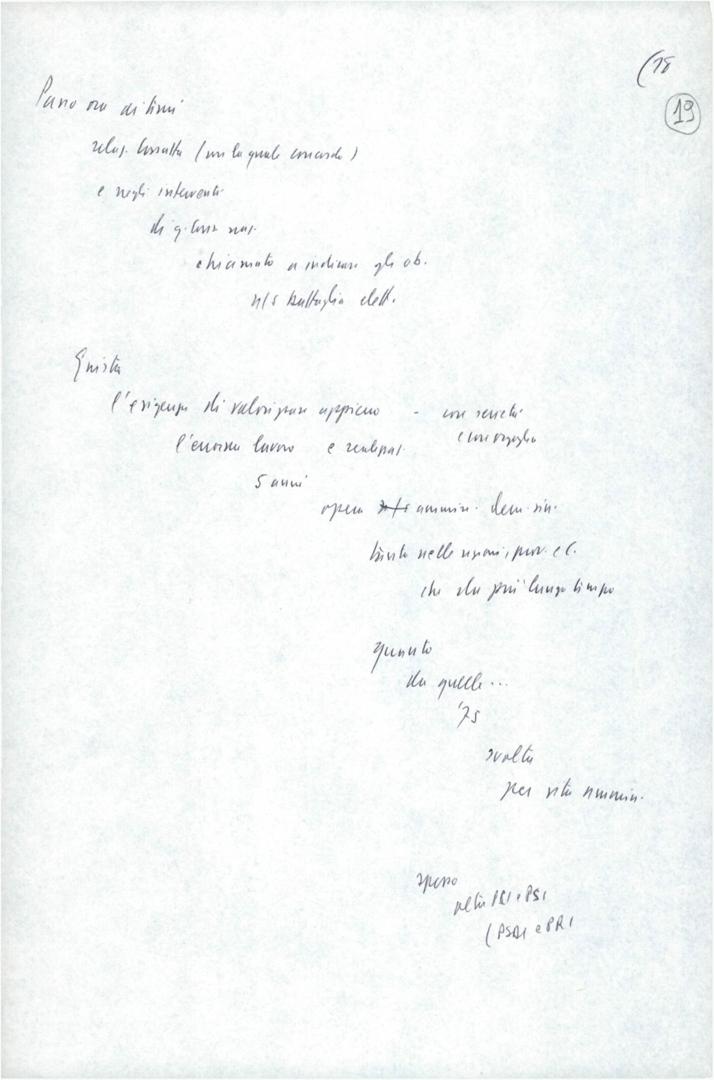 (18
19
Passo ora ai temi
relaz. Cossutta (con la quale concordo)
e negli interventi
di q. Cons. naz.
chiamato a indicare gli ob.
n/s battaglia elett.
Giusta
l'esigenza di valorizzare appieno - con serietà
e con orgoglio
l'enorme lavoro e realizzaz.
5 anni
opera ammin. dem. sin.
tanto nelle regioni, prov. e C.
che da più lungo tempo
quanto
da quelle...
'75
svolta
per vita ammin.
spesso
oltre PCI e PSI
(PSDI e PRI